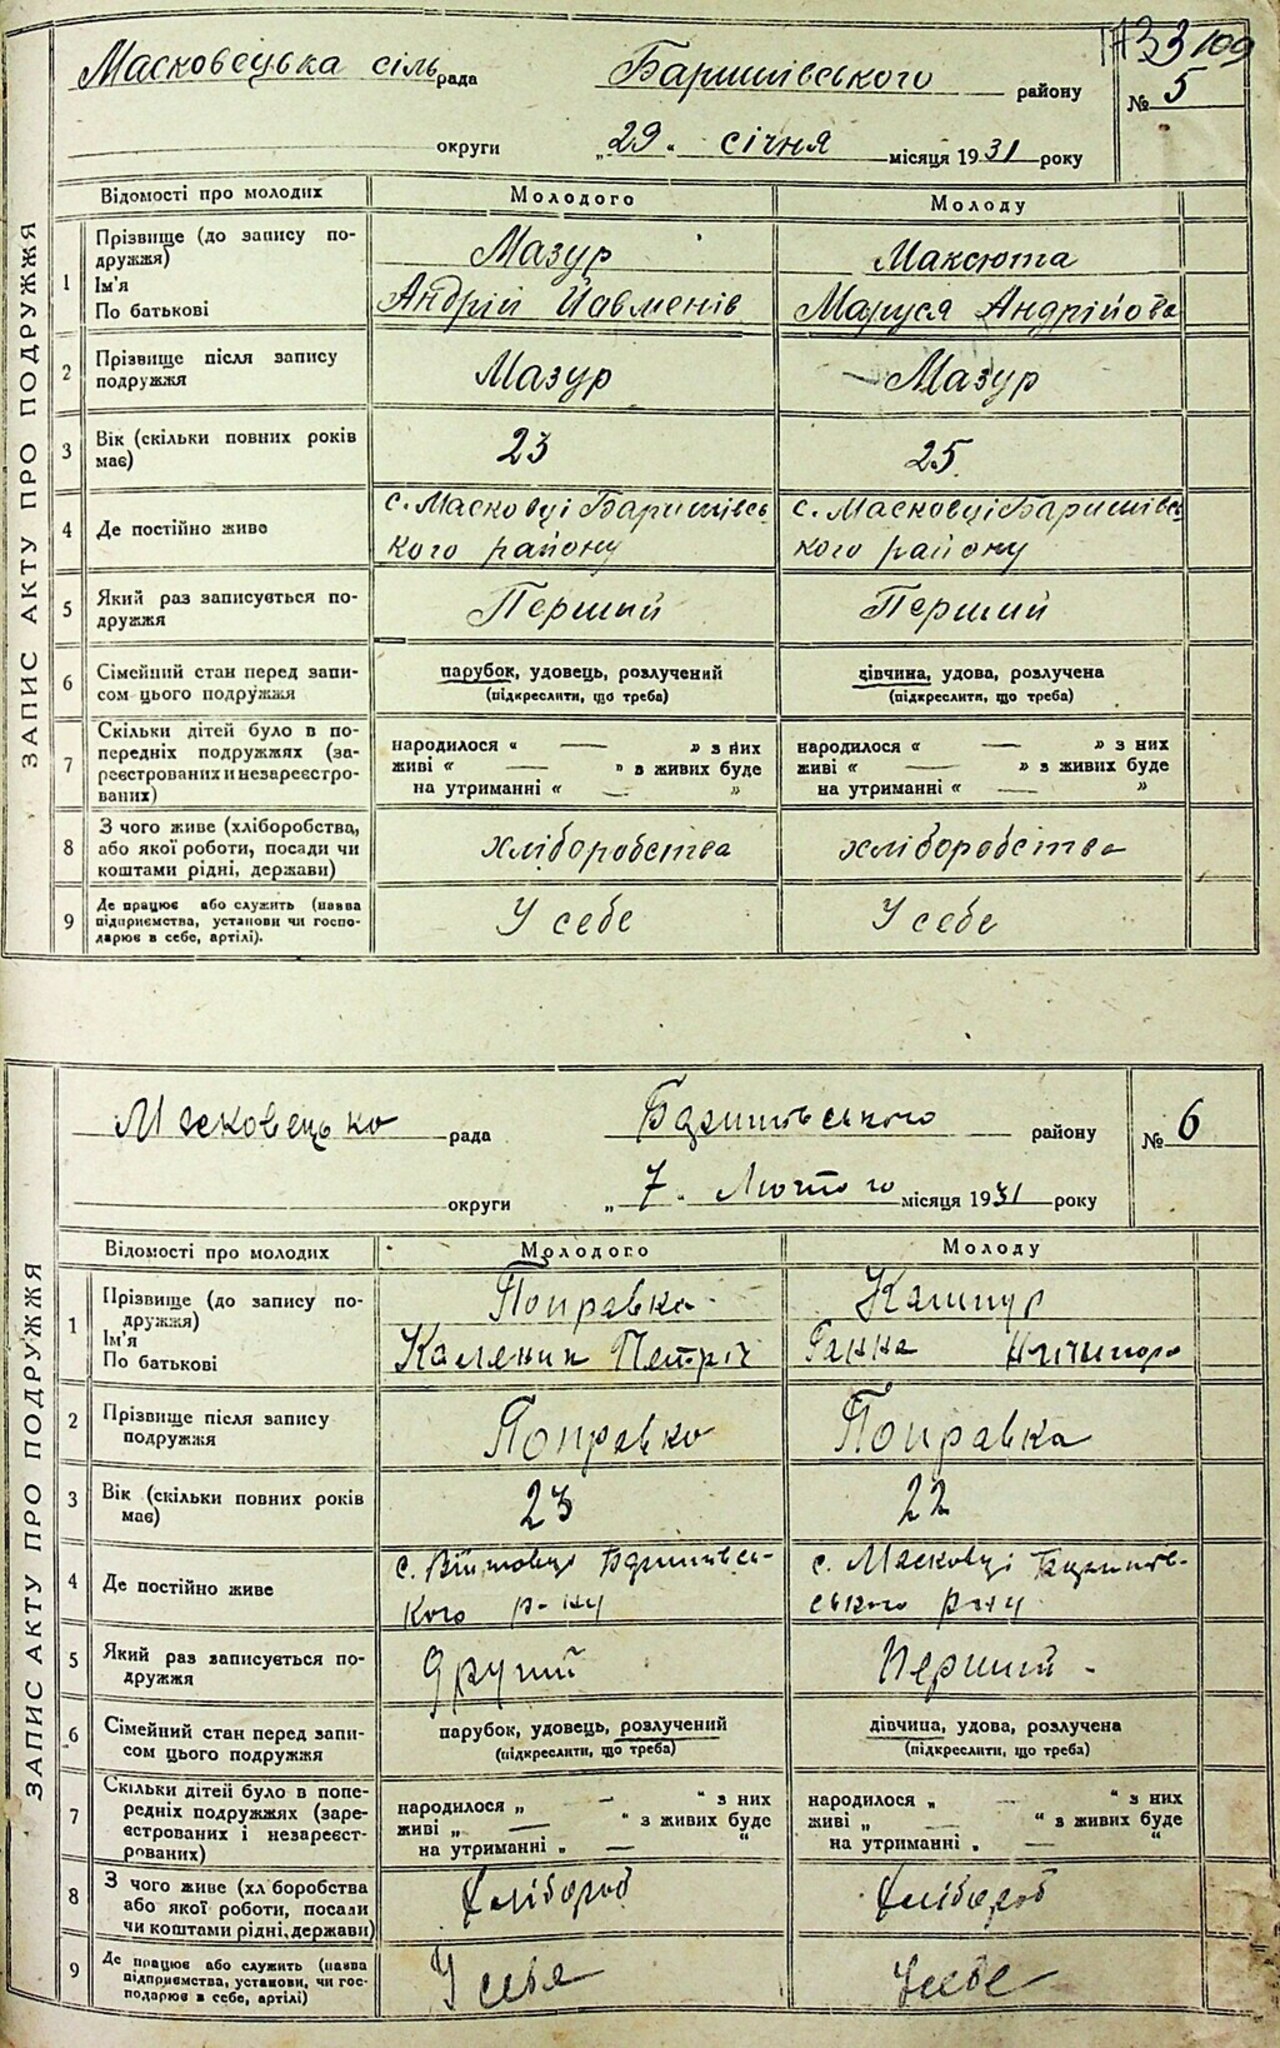 109
Масковецька сільрада Баришівського району № 5
округи „29“ січня місяця 1931 року
ЗАПИС АКТУ ПРО ПОДРУЖЖЯ
Відомості про молодих Молодого Молоду
1 Прізвище (до запису по- Мазур Максюта
дружжя)
Ім'я Андрій Маруся Андрійова
По батькові
2 Прізвище після запису Мазур Мазур
подружжя
3 Вік (скільки повних років 23 25
має)
4 Де постійно живе с. Масковці Баришівсь- с. Масковці Баришівсь-
кого району кого району
5 Який раз записується по- Перший Перший
дружжя
6 Сімейний стан перед запи- парубок, удовець, розлучений дівчина, удова, розлучена
сом цього подружжя (підкреслити, що треба) (підкреслити, що треба)
7 Скільки дітей було в по-
передніх подружжях (за- народилося “ — ” з них народилося “ — ” з них
реєстрованих и незареєстро- живі “ — ” з живих буде живі “ — ” з живих буде
ваних) на утриманні “ — ” на утриманні “ — ”
8 З чого живе (хліборобства,
або якої роботи, посади чи хліборобства хліборобства
коштами рідні, держави)
9 Де працює або служить (назва
підприємства, установи чи госпо- У себе У себе
дарює в себе, артілі).
Масковецько рада Баришівського району № 6
округи „7“ Лютого місяця 1931 року
ЗАПИС АКТУ ПРО ПОДРУЖЖЯ
Відомості про молодих Молодого Молоду
1 Прізвище (до запису по- Поправка
дружжя)
Ім'я Каленик Петріч Ганна
По батькові
2 Прізвище після запису Поправко Поправка
подружжя
3 Вік (скільки повних років 23 22
має)
4 Де постійно живе с. Війтовці Баришівсь- с. Масковці Баришів-
кого р-ну ського р-ну
5 Який раз записується по- другий Перший -
дружжя
6 Сімейний стан перед запи- парубок, удовець, розлучений дівчина, удова, розлучена
сом цього подружжя (підкреслити, що треба) (підкреслити, що треба)
7 Скільки дітей було в попе-
редніх подружжях (заре- народилося „ — “ з них народилося „ — “ з них
єстрованих і незареєст- живі „ — “ з живих буде живі „ — “ з живих буде
рованих) на утриманні „ — “ на утриманні „ — “
8 З чого живе (хл боробства
або якої роботи, посади Хлібороб Хлібороб
чи коштами рідні, держави)
9 Де працює або служить (назва
підприємства, установи, чи гос- У себя У себе
подарює в себе, артілі)